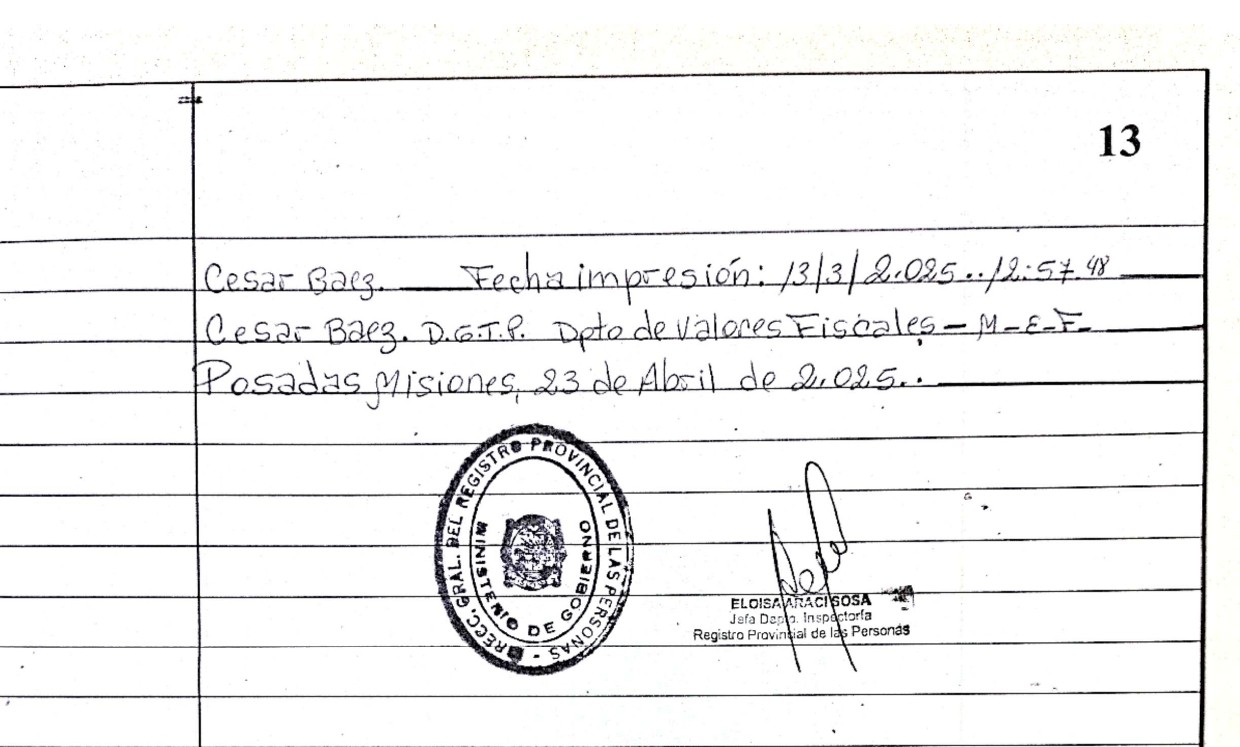 13
Cesar Baez. Fecha impresión: 13/3/2.025.. 12:57.48
Cesar Baez. D.G.T.P. Dpto de Valores Fiscales - M-E-F-
Posadas Misiones, 23 de Abril de 2.025..
RECC. GRAL. DEL REGISTRO PROVINCIAL DE LAS PERSONAS -
MINISTERIO DE GOBIERNO
ELOISA ARACI SOSA
Jefa Depto. Inspectoría
Registro Provincial de las Personas